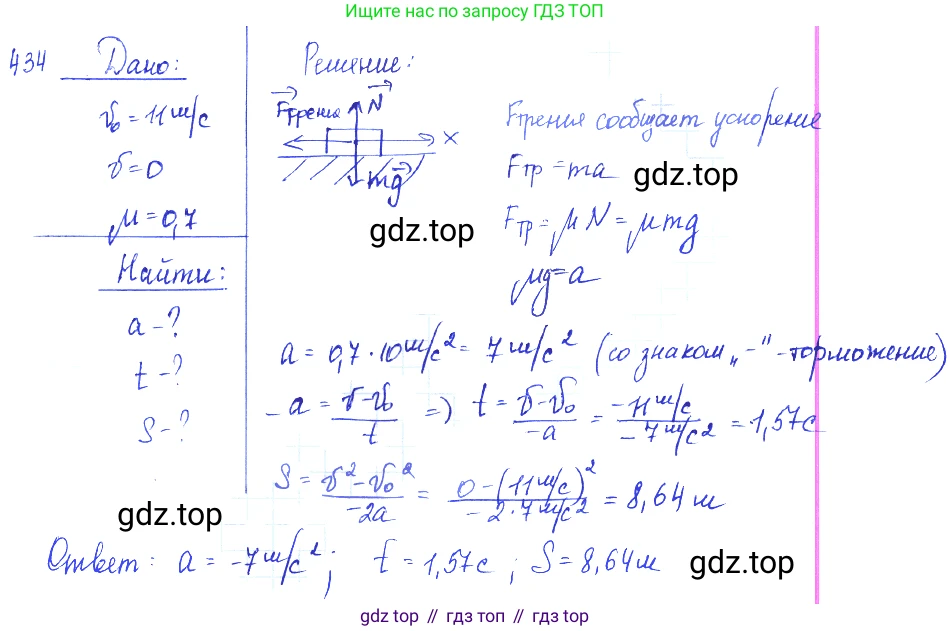 Ищите нас по запросу ГДЗ ТОП
434 Дано: Решение:
v₀ = 11 м/с
v = 0
μ = 0,7
Найти:
a - ?
t - ?
S - ?
Fтрения N
X
mg
Fтрения сообщает ускорение
Fтр = ma
gdz.top
gdz.top
Fтр = μN = μmg
μg = a
a = 0,7 · 10 м/с² = 7 м/с² (со знаком „-" - торможение)
-a = v-v₀/t => t = v-v₀/-a = -11 м/с/-7 м/с² = 1,57 с
S = v²-v₀²/-2a = 0-(11 м/с)²/-2·7 м/с² = 8,64 м
gdz.top
Ответ: a = -7 м/с²; t = 1,57 с; S = 8,64 м
gdz.top
gdz.top // гдз топ // гдз top